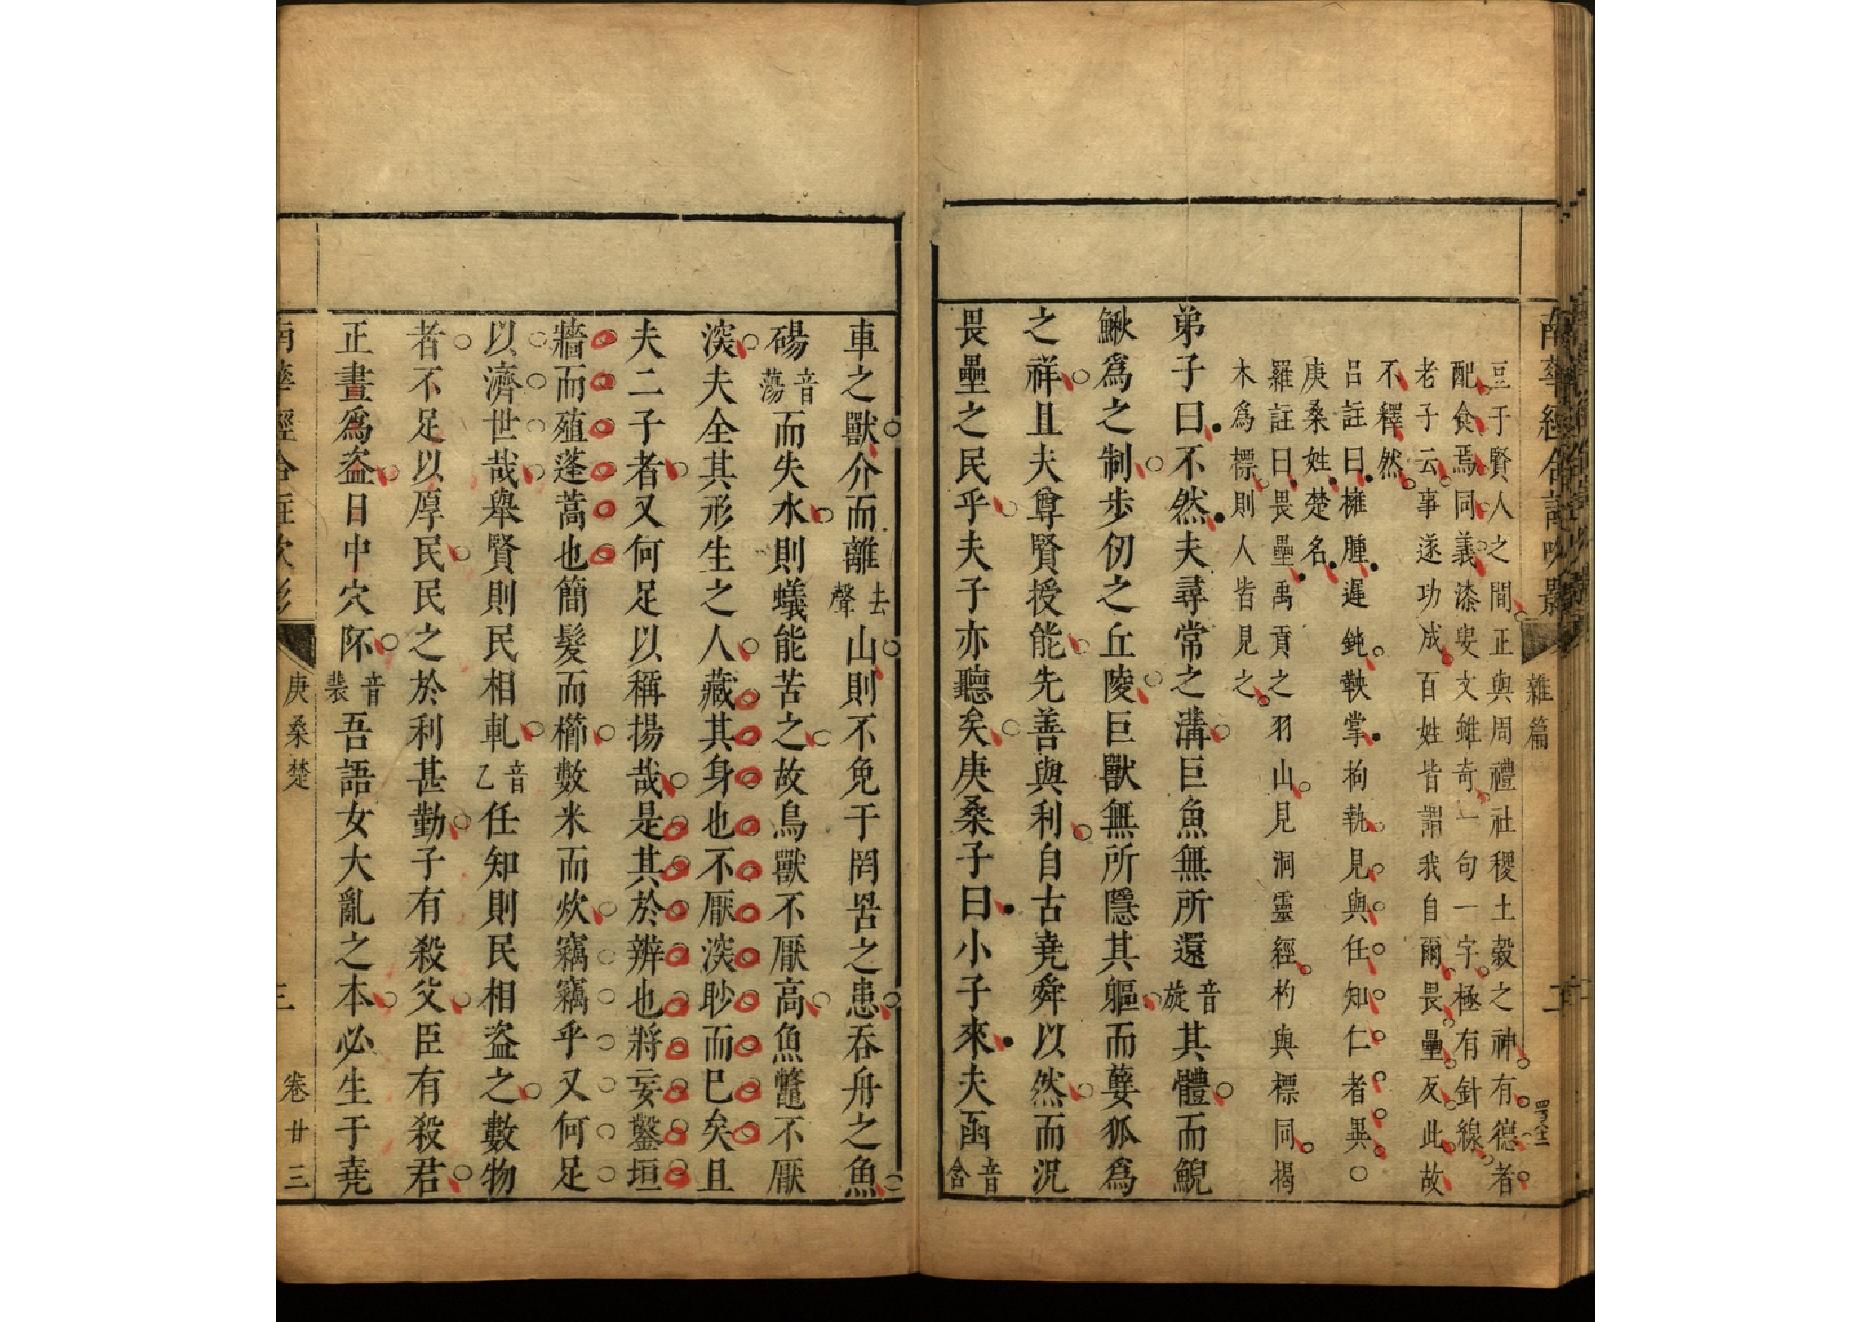 南華經合註吹影
雜篇
二
豆于賢人之間正與周禮社稷土穀之神有德者
配食焉同義漆叟文雖奇一句一字極有針線
老子云事遂功成百姓皆謂我自爾畏壘反此故
不釋然
呂註曰擁腫遲鈍鞅掌拘執見與任知仁者異
庚桑姓楚名
羅註曰畏壘禹貢之羽山見洞靈經杓與標同揭
木為標則人皆見之
弟子曰不然夫尋常之溝巨魚無所還音旋其體而鯢
鰍為之制步仞之丘陵巨獸無所隱其軀而㜸狐為
之祥且夫尊賢授能先善與利自古堯舜以然而況
畏壘之民乎夫子亦聽矣庚桑子曰小子來夫函音含
車之獸介而離去聲山則不免于罔罟之患吞舟之魚
碭音蕩而失水則蟻能苦之故鳥獸不厭高魚鼈不厭
深夫全其形生之人藏其身也不厭深眇而已矣且
夫二子者又何足以稱揚哉是其於辨也將妄鑿垣
牆而殖蓬蒿也簡髮而櫛數米而炊竊竊乎又何足
以濟世哉舉賢則民相軋音乙任知則民相盜之數物
者不足以厚民民之於利甚勤子有殺父臣有殺君
正晝為盜日中穴阫音裴吾語女大亂之本必生于堯
南華經合註吹影
庚桑楚
三
卷廿三